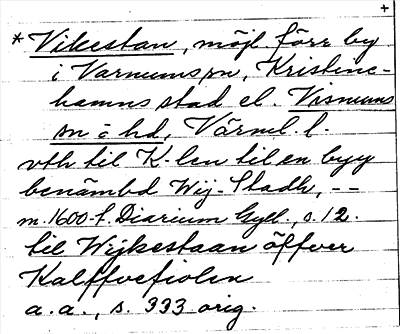 +
* Vikestan, möjl. förr by
i Varnums sn, Kristine-
hamns stad el. Visnums
sn o hd, Värml. l.
vth til K-len til en byy
benämbd Wij-Stadh, --
m. 1600-t. Diarium Gyll., s. 12.
til Wijkestaan öffver
Kalffvefiolen
a.a., s. 333 orig.